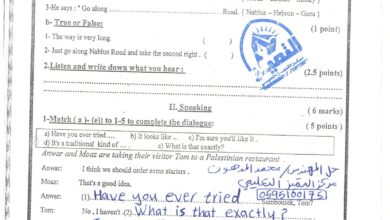 3-He says : " Go along ........ Road. ( Nablus – Hebron – Gaza )
b)- True or False: (1 point)
1- The way is very long ( )
2- Just go along Nablus Road and take the second right . ( )
2.Listen and write down what you hear: (2.5 points)
II. Speaking ( 6 marks)
1-Match ( a )- (e)) to 1-5 to complete the dialogue: ( 5 points )
a) Have you ever tried.... b) It looks like ... c) I'm sure you'll like it .
d) It's a traditional kind of .... e) What is that exactly?
Anwar and Moaz are taking their visitor Tom to a Palestinian restaurant
Anwar: I think we should order some starters .
Moaz: That's a good idea.
0595100175
Anwar: (1) Have you ever tried Sambousek, Tom?
Tom: No , I haven't . (2) What is that exactly?